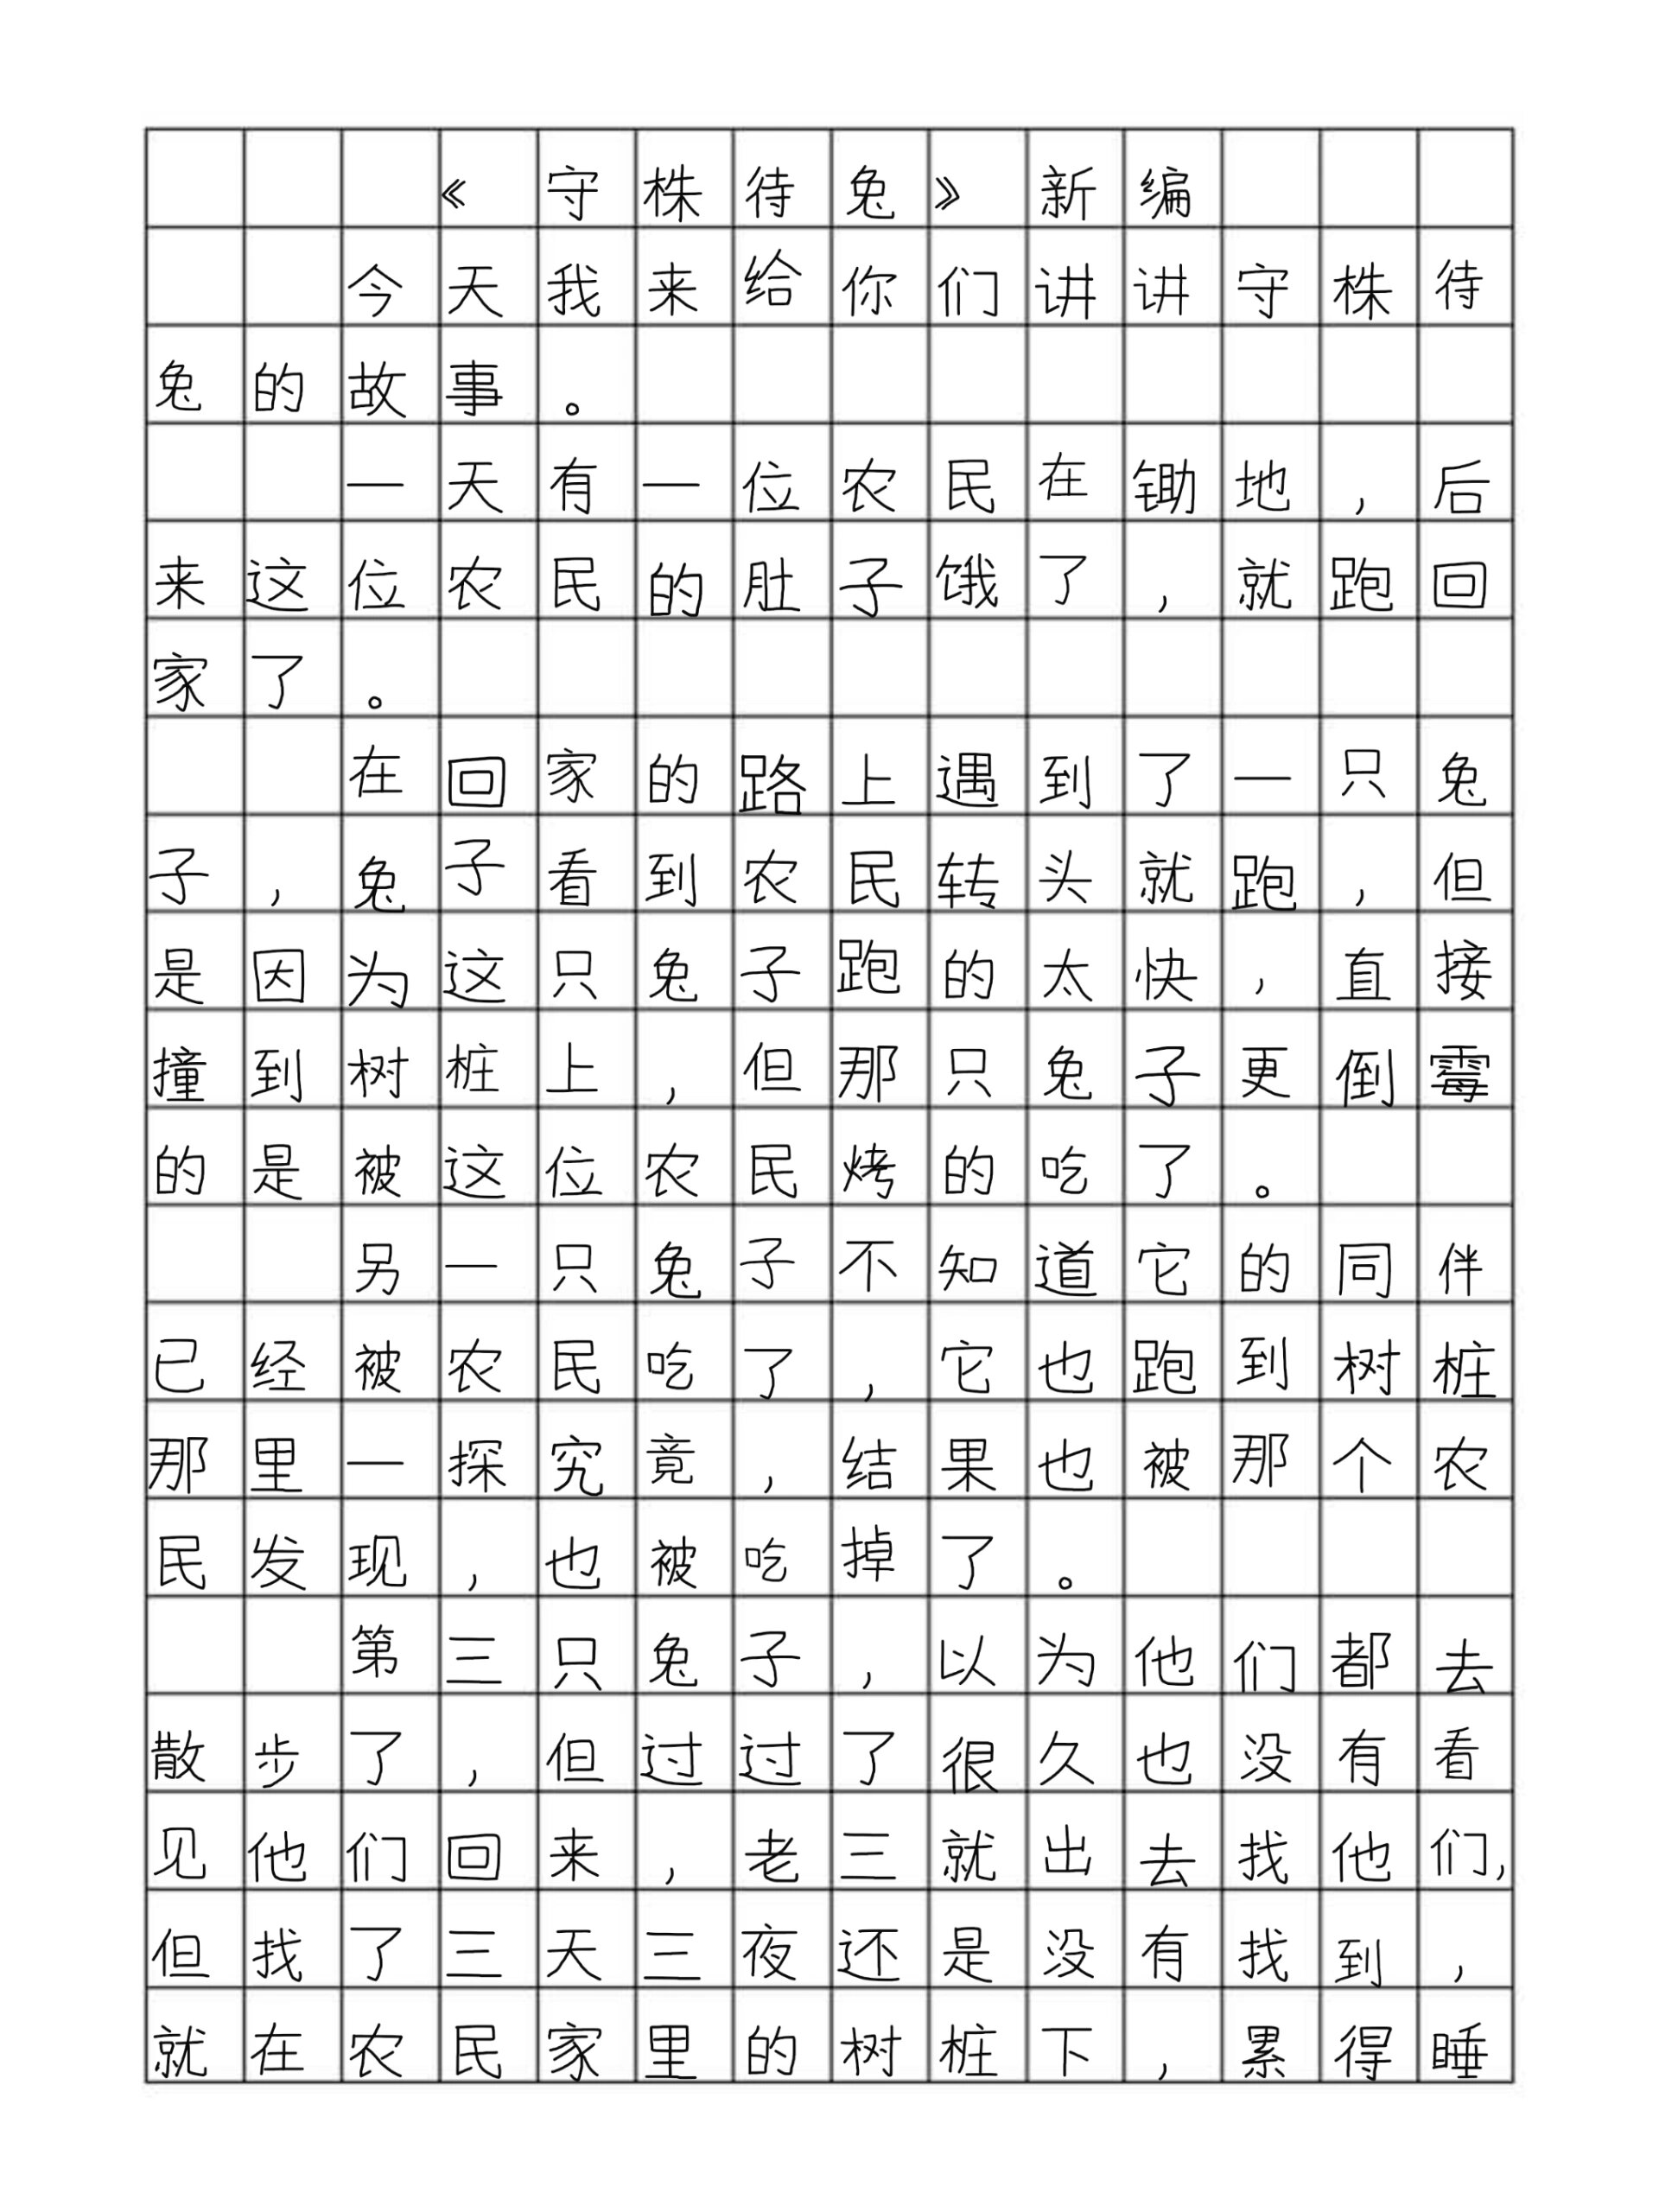 《守株待兔》新编
今天我来给你们讲讲守株待
兔的故事。
一天有一位农民在锄地，后
来这位农民的肚子饿了，就跑回
家了。
在回家的路上遇到了一只兔
子，兔子看到农民转头就跑，但
是因为这只兔子跑的太快，直接
撞到树桩上，但那只兔子更倒霉
的是被这位农民烤的吃了。
另一只兔子不知道它的同伴
已经被农民吃了，它也跑到树桩
那里一探究竟，结果也被那个农
民发现，也被吃掉了。
第三只兔子，以为他们都去
散步了，但过过了很久也没有看
见他们回来，老三就出去找他们，
但找了三天三夜还是没有找到，
就在农民家里的树桩下，累得睡